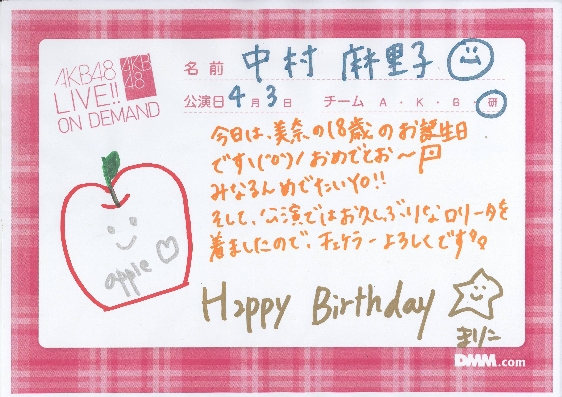 AKB48
LIVE!!
ON DEMAND
AKB
48
名前 中村 麻里子
公演日 4月3日 チーム A・K・B・研
今日は、美奈の18歳のお誕生日
です\(^o^)/おめでとお〜
みなるんめでたいYO!!
そして、公演ではお久しぶりなロリータを
着ましたので、チェケラーよろしくです
apple
Happy Birthday
まりこ
DMM.com